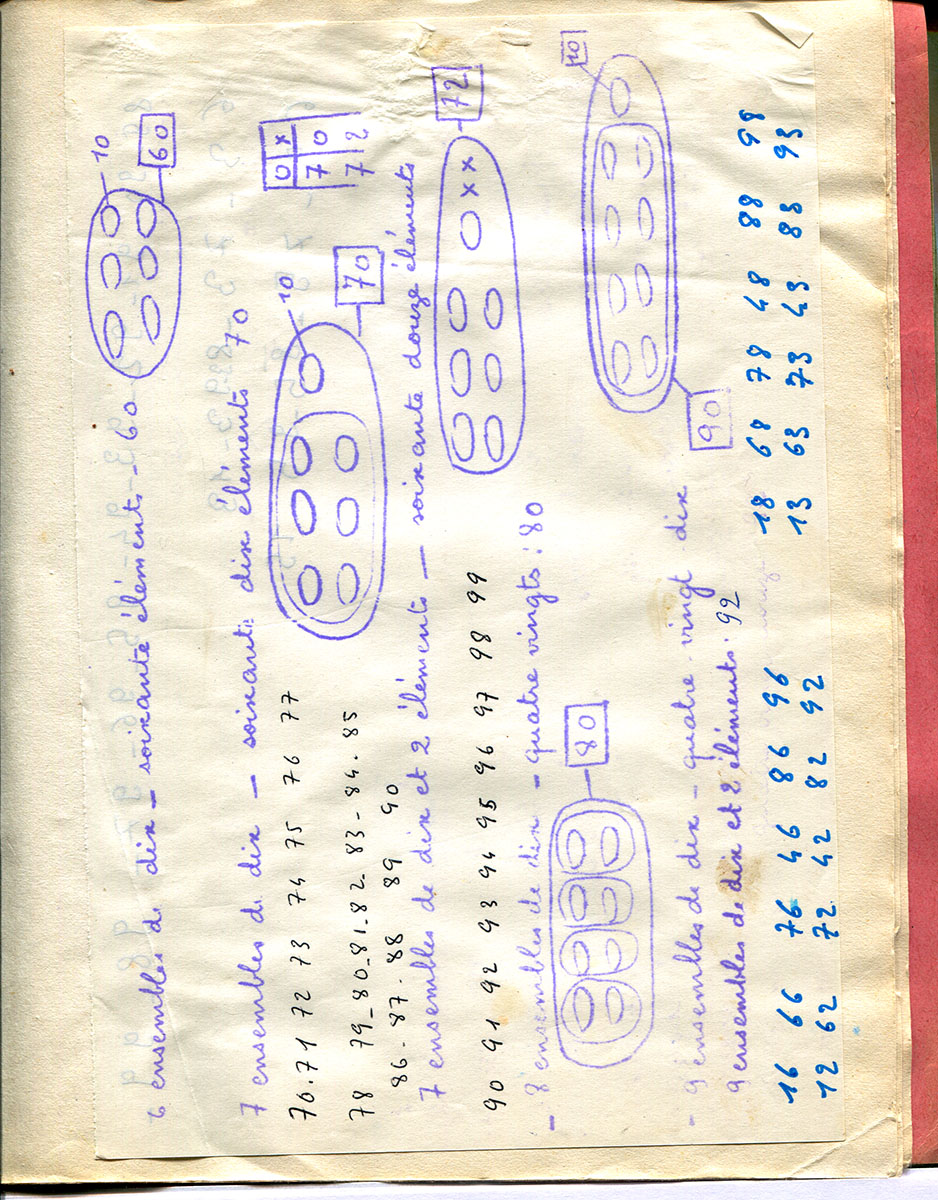 6 ensembles de dix – soixante élément – 60
10
60
7 ensembles de dix – soixante dix éléments 70
0 x
7 0
7 2
10
70
70.71 72 73 74 75 76 77
78 79_80_81_82_83_84.85
86_87.88 89 90
7 ensembles de dix et 2 éléments – soixante douze éléments
72
90 91 92 93 94 95 96 97 98 99
– 8 ensembles de dix – quatre vingts : 80
80
10
90
– 9 ensembles de dix – quatre-vingt dix
9 ensembles de dix et 2 éléments : 92
16 66 76 46 86 96 18 68 78 48 88 98
12 62 72 42 82 92 13 63 73 43 83 93